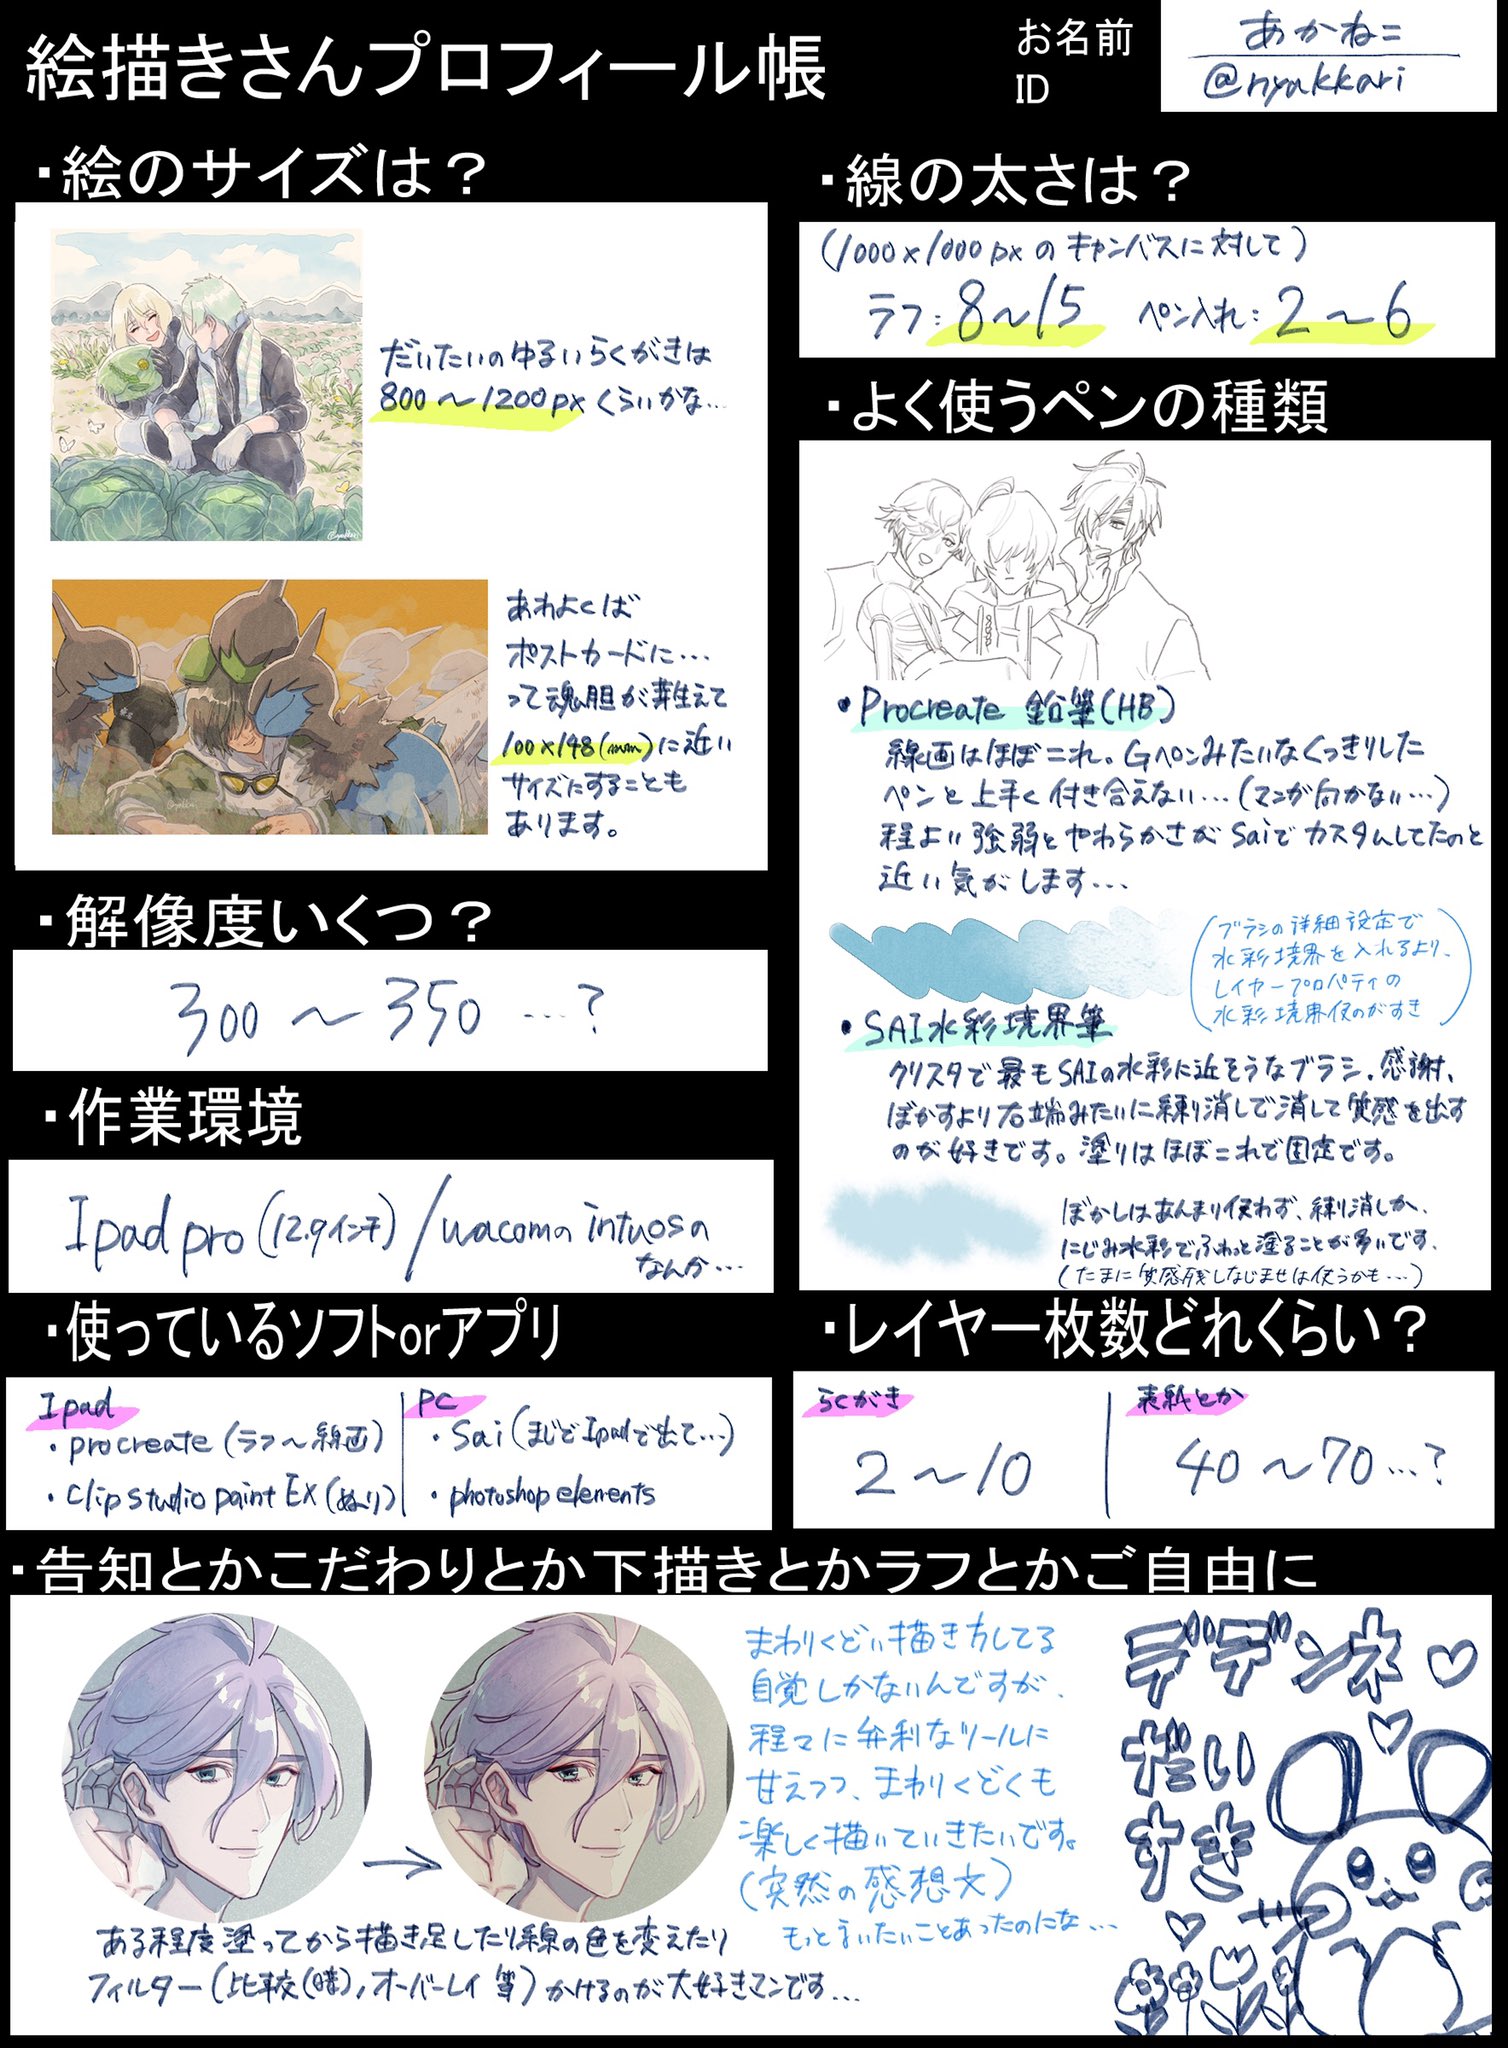 絵描きさんプロフィール帳
お名前
あかねこ
ID
@nyakkari
・絵のサイズは？
だいたいのゆるいらくがきは
800〜1200pxくらいかな…
あわよくば
ポストカードに…
って魂胆が芽生えて
100×148(mm)に近い
サイズにすることも
あります。
・解像度いくつ？
300〜350…?
・作業環境
Ipad pro(12.9インチ)/wacomの intuosの
なんか…
・使っているソフトorアプリ
Ipad
・procreate(ラフ〜線画)
・Clip studio paint EX(ぬり)
PC
・Sai(まじでIpadで出て…)
・photoshop elements
・線の太さは？
(1000×1000pxのキャンバスに対して)
ラフ:8〜15 ペン入れ:2〜6
・よく使うペンの種類
・Procreate 鉛筆(HB)
線画はほぼこれ。Gペンみたいなくっきりした
ペンと上手く付き合えない…(マンガ向かない…)
程よい強弱とやわらかさがSaiでカスタムしてたのと
近い気がします…
(ブラシの詳細設定で
水彩境界を入れるより、
レイヤープロパティの
水彩境界使のがすき)
・SAI水彩境界筆
クリスタで最もSAIの水彩に近そうなブラシ。感謝、
ぼかすより右端みたいに練り消しで消して質感を出す
のが好きです。塗りはほぼこれで固定です。
ぼかしはあんまり使わず、練り消しか、
にじみ水彩でふわっと塗ることが多いです、
(たまに質感残しなじませは使うかも…)
・レイヤー枚数どれくらい？
らくがき
2〜10
表紙とか
40〜70…?
・告知とかこだわりとか下描きとかラフとかご自由に
ある程度塗ってから描き足したり線の色を変えたり
フィルター(比較(暗),オーバーレイ 等)かけるのが大好きマンです…
まわりくどい描き方してる
自覚しかないんですが、
程々に便利なツールに
甘えつつ、まわりくどくも
楽しく描いていきたいです。
(突然の感想文)
もっと言いたいことあったのにな…
デデンネ♡
だい
すき